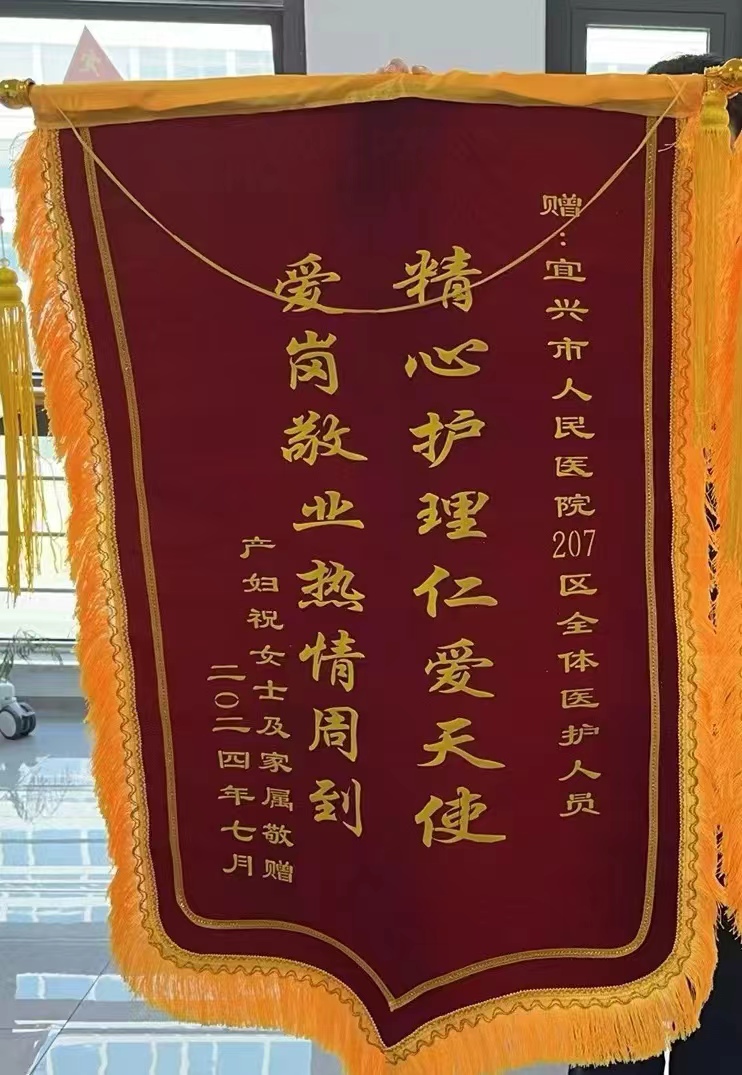 赠：宜兴市人民医院207区全体医护人员
精心护理仁爱天使
爱岗敬业热情周到
产妇祝女士及家属敬赠
二〇二四年七月